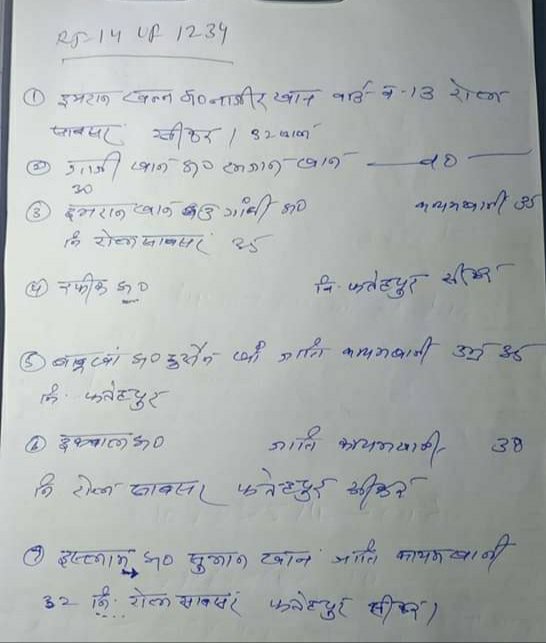 RJ-14 UP 1234
① इमरान खान S/O नाजीर खान वार्ड न-13 रोल
साबसर सीकर / 32 साल
② खान S/O रमजान खान — do —
30
③ इमरान खान उर्फ गांधी S/O कायमखानी 35
नि रोल साबसर 25
④ रफीक S/O नि. फतेहपुर सीकर
⑤ बाबू खां S/O हुसैन खाँ जाति कायमखानी उम्र 35
नि. फतेहपुर
⑥ इकबाल S/O जाति कायमखानी 38
नि रोल साबसर फतेहपुर सीकर
⑦ इस्लाम S/O खान जाति कायमखानी
32 नि. रोल साबसर फतेहपुर सीकर।